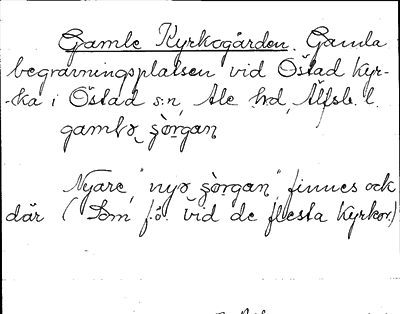 Gamle Kyrkogården. Gamla
begravningsplatsen vid Östad Kyr-
-ka i Östad s:n, Ale h:d, Älfsb. l.
gamlə çòrgan
Nyare, "nyə çòrgan," finnes ock
där (Som f.ö. vid de flesta Kyrkor.)